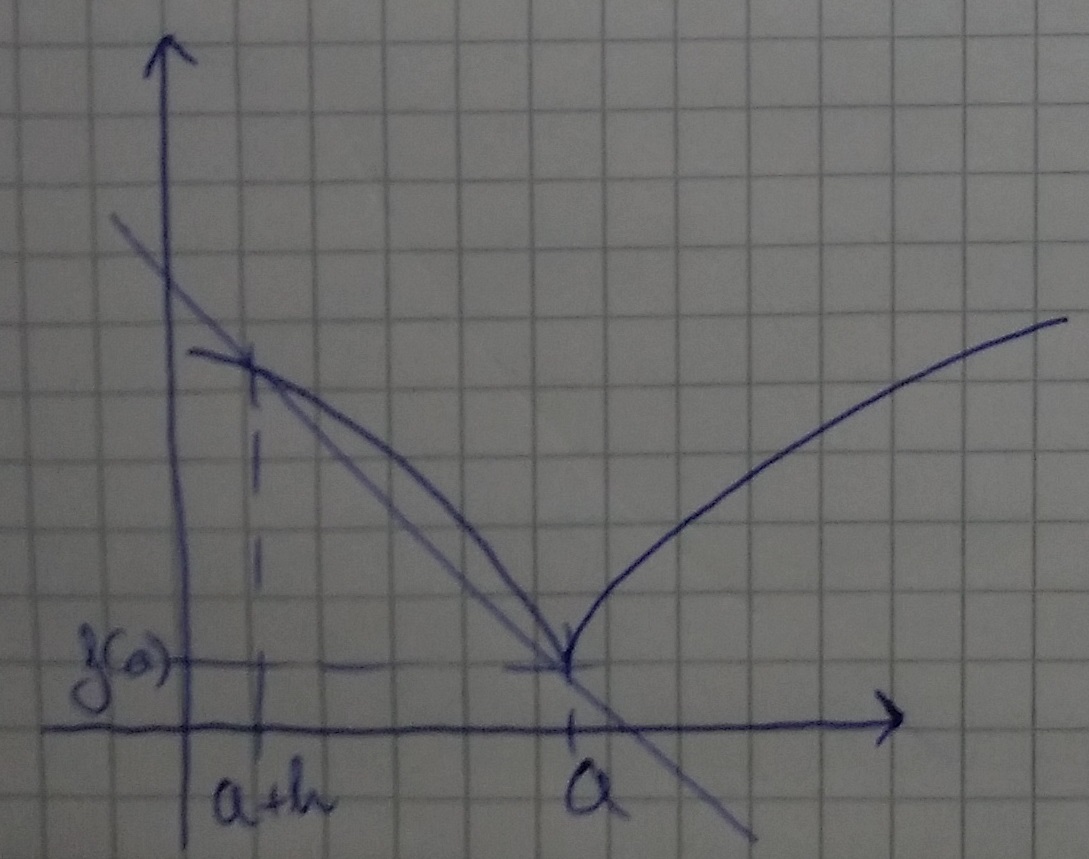 f(a)
a+h
a